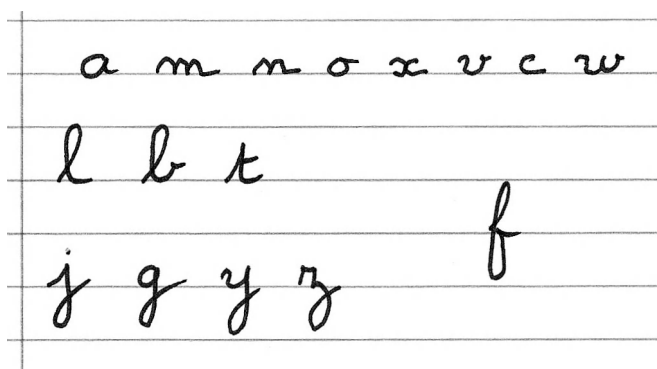 a m n o x v c w
l b t
f
j g y z